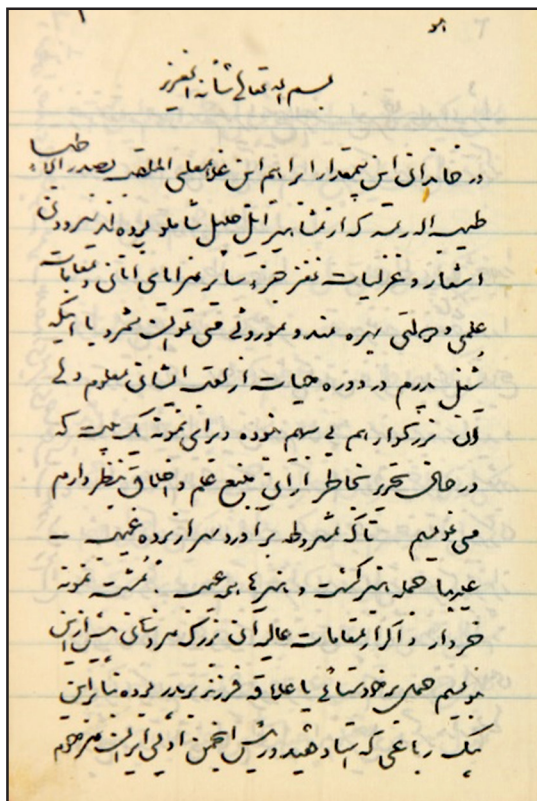 بسم الله تعالی شأنه العزیز
در خاندانی این بیمقدار ابراهیم ابن غلامعلی الملقب بصدر الاطبا
طبیب اله که از مشاهیر ایل جلیل شاملو بوده اند نیروی
اشعار و غزلیات نغز و سایر هنر و مقامات
علمی و بهره مند و موروثی می توانست شمرد با اینکه
شغل پدرم در دوره حیات از لقب ایشانی معلوم ولی
آن بزرگوار هم بی سهم نبوده و برای نمونه یک بیت که
در حال تحریر بخاطر از آن منبع علم و اخلاق بنظر دارم
می نویسم تا که مشروطه برآورد سر از پرده غیب -
عیبها همه هنر گشت و هنرها همه عیب مشت نمونه
خروار و اگر از مقامات عالیه آن بزرگ مرد بیش از این
بنویسم حمل بر خودستائی یا علاقه فرزند بر پدر بنابراین
بیک رباعی که استاد شهید رئیس انجمن ادبی ایران مرحوم